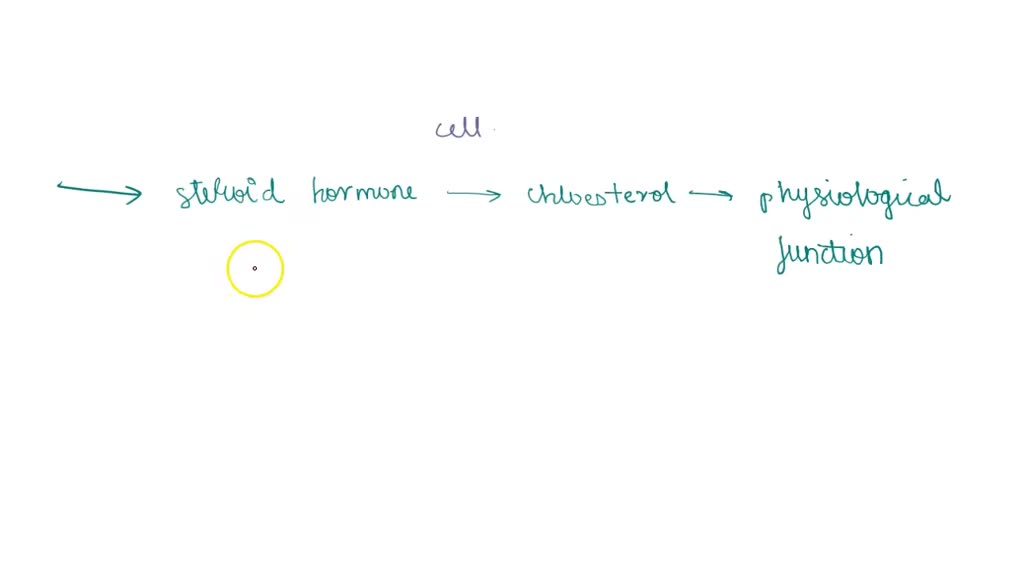 cell
steroid hormone → chloesterol → physiological
function